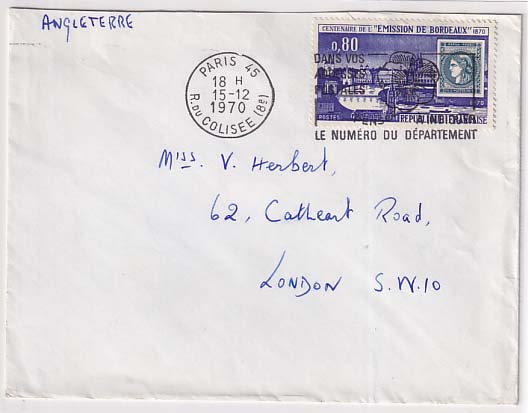 ANGLETERRE
CENTENAIRE DE L'"EMISSION DE BORDEAUX" 1870
0,80
1970
POSTES
REPUBLIQUE FRANÇAISE
PARIS 45
18 H
15-12
1970
R. DU COLISEE (8e)
DANS VOS
A INDIQUER
LE NUMÉRO DU DÉPARTEMENT
Miss. V. Herbert,
62, Cathcart Road,
LONDON S.W.10